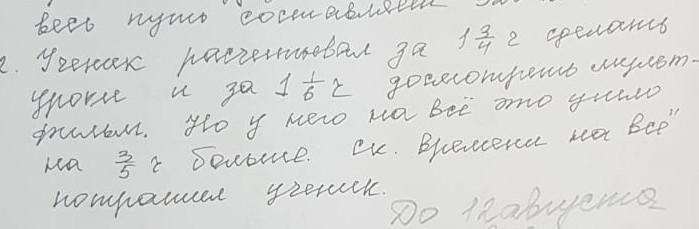 весь путь составляет
2. Ученик расчитывал за 1 3/4 ч сделать
уроки и за 1 1/6 ч досмотреть мульт-
фильм. Но у него на всё это ушло
на 3/5 ч больше. ск. времени на всё"
потратил ученик.
До 12 августа